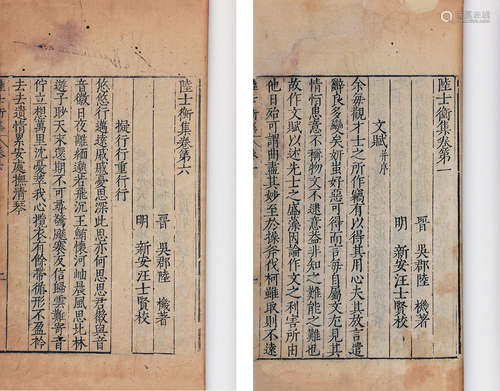 陸士衡集卷第一
晉 吳郡陸 機著
明 新安汪士賢校
文賦 并序
余每觀才士之所作竊有以得其用心夫其放言遣
辭良多變矣妍蚩好惡可得而言每自屬文尤見其
情恒患意不稱物文不逮意蓋非知之難能之難也
故作文賦以述先士之盛藻因論作文之利害所由
他日殆可謂曲盡其妙至於操斧伐柯雖取則不遠
陸士衡集卷第六
晉 吳郡陸 機著
明 新安汪士賢校
擬行行重行行
悠悠行邁遠戚戚憂思深此思亦何思思君徽與音
音徽日夜離緬邈若飛沉王鮪懷河岫晨風思北林
遊子眇天末還期不可尋驚飇褰友信歸雲難寄音
佇立想萬里沈憂萃我心攬衣有餘帶循形不盈衿
去去遺情累安處撫清琴